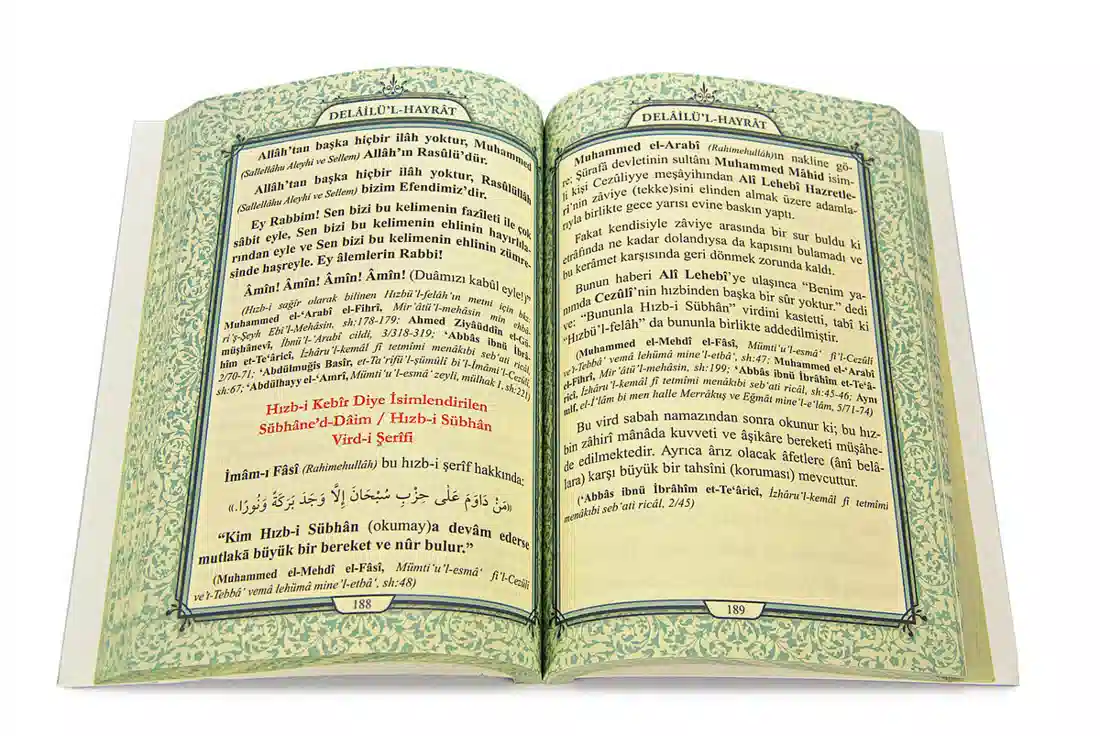 DELÂİLÜ'L-HAYRÂT
Allâh'tan başka hiçbir ilâh yoktur, Muhammed
(Sallellâhu Aleyhi ve Sellem) Allâh'ın Rasûlü'dür.
Allâh'tan başka hiçbir ilâh yoktur, Rasûlüllâh
(Sallellâhu Aleyhi ve Sellem) bizim Efendimiz'dir.
Ey Rabbim! Sen bizi bu kelimenin fazîleti ile çok
sâbit eyle, Sen bizi bu kelimenin ehlinin hayırlıla-
rından eyle ve Sen bizi bu kelimenin ehlinin zümre-
sinde haşreyle. Ey âlemlerin Rabbi!
Âmîn! Âmîn! Âmîn! (Duâmızı kabûl eyle!)"
(Hızb-i sağîr olarak bilinen Hızbü'l-felâh'ın metni için bkz:
Muhammed el-'Arabî el-Fihrî, Mir'âtü'l-mehâsin min ehbâ-
ri'ş-Şeyh Ebi'l-Mehâsin, sh:178-179; Ahmed Ziyâüddîn el-Gü-
müşhânevî, İbnü'l-'Arabî cildi, 3/318-319; 'Abbâs ibnü İbrâ-
hîm et-Te'âricî, İzhâru'l-kemâl fî tetmîmi menâkıbi seb'ati ricâl,
2/70-71; 'Abdülmuğîs Basîr, et-Ta'rîfü'l-şümûlî bi'l-İmâmi'l-Cezûlî,
sh:67; 'Abdülhayy el-'Amrî, Mümti'u'l-esmâ' zeyli, mülhak 1, sh:221)
Hızb-i Kebîr Diye İsimlendirilen
Sübhâne'd-Dâim / Hızb-i Sübhân
Vird-i Şerîfi
İmâm-ı Fâsî (Rahimehullâh) bu hızb-i şerîf hakkında:
«مَنْ دَاوَمَ عَلٰى حِزْبِ سُبْحَانَ إِلَّا وَجَدَ بَرَكَةً وَنُورًا.»
"Kim Hızb-i Sübhân (okumay)a devâm ederse
mutlakā büyük bir bereket ve nûr bulur."
(Muhammed el-Mehdî el-Fâsî, Mümti'u'l-esmâ' fi'l-Cezûlî
ve't-Tebbâ' vemâ lehümâ mine'l-etbâ', sh:48)
188
DELÂİLÜ'L-HAYRÂT
Muhammed el-Arabî (Rahimehullâh)ın nakline gö-
re; Şürafâ devletinin sultânı Muhammed Mâhid isim-
li kişi Cezûliyye meşâyihından Alî Lehebî Hazretle-
ri'nin zâviye (tekke)sini elinden almak üzere adamla-
rıyla birlikte gece yarısı evine baskın yaptı.
Fakat kendisiyle zâviye arasında bir sur buldu ki
etrâfında ne kadar dolandıysa da kapısını bulamadı ve
bu kerâmet karşısında geri dönmek zorunda kaldı.
Bunun haberi Alî Lehebî'ye ulaşınca "Benim ya-
nımda Cezûlî'nin hızbinden başka bir sûr yoktur." dedi
ve: "Bununla Hızb-i Sübhân" virdini kastetti, tabî ki
"Hızbü'l-felâh" da bununla birlikte addedilmiştir.
(Muhammed el-Mehdî el-Fâsî, Mümti'u'l-esmâ' fi'l-Cezûlî
ve't-Tebbâ' vemâ lehümâ mine'l-etbâ', sh:47; Muhammed el-'Arabî
el-Fihrî, Mir'âtü'l-mehâsin, sh:199; 'Abbâs ibnü İbrâhîm et-Te'â-
ricî, İzhâru'l-kemâl fî tetmîmi menâkıbi seb'ati ricâl, sh:45-46; Aynı
mlf, el-İ'lâm bi men halle Merrâkuş ve Eğmât mine'l-e'lâm, 5/71-74)
Bu vird sabah namazından sonra okunur ki; bu hız-
bin zâhirî mânâda kuvveti ve âşikâre bereketi müşâhe-
de edilmektedir. Ayrıca ârız olacak âfetlere (ânî belâ-
lara) karşı büyük bir tahsîni (koruması) mevcuttur.
('Abbâs ibnü İbrâhîm et-Te'âricî, İzhâru'l-kemâl fî tetmîmi
menâkıbi seb'ati ricâl, 2/45)
189